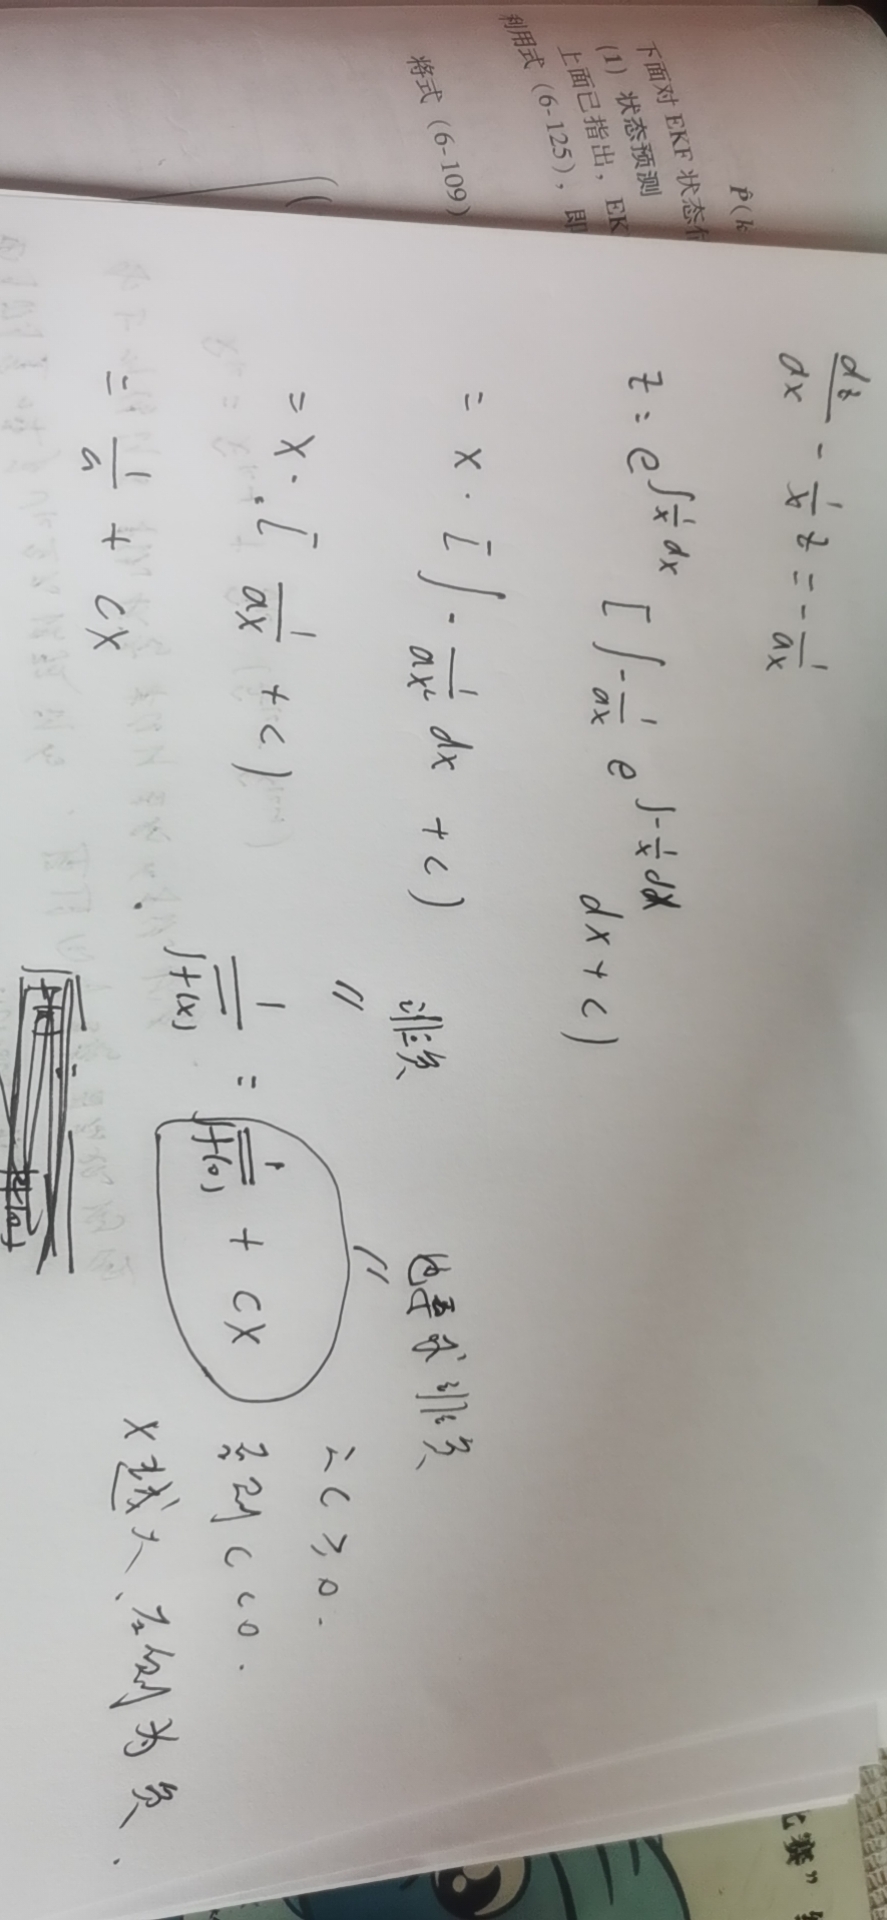 P̂(k
下面对 EKF 状态估
(1) 状态预测
上面已指出，EK
利用式 (6-125)，即
将式 (6-109)
dz/dx - 1/x z = - 1/ax
z = e^{∫1/x dx} [∫ - 1/ax e^{∫-1/x dx} dx + C)
= x · [∫ - 1/ax² dx + C)
= x · [1/ax + C)
= 1/a + CX
非负 也要求非负
1/√f(x) = 1/√f(0) + CX
∴ C ≥ 0.
否则 C < 0.
X 越大、右侧为负.
比赛"